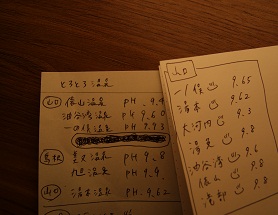 とろとろ温泉
山口 俵山温泉 PH 9.9
油谷湾温泉 PH 9.60
一の俣温泉 PH 9.93
島根 温泉 PH 9.8
温泉 PH 9.
山口 湯本温泉 PH 9.62
山口
一ノ俣 9.65
湯本 9.62
大河内 9.3
湯免 9.8
油谷湾 9.6
俵山 9.8
湯部 9.8